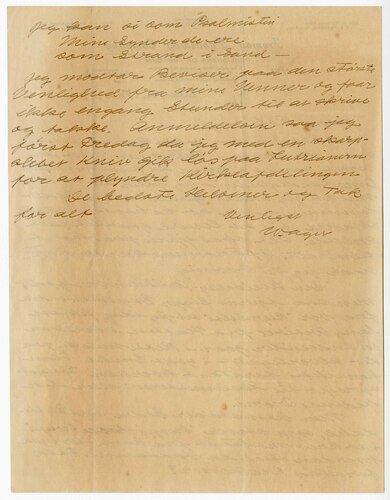 Jeg kan si som Psalmisten
Mine Synder de ere
som Strand i Sand —
Jeg modtar Beviser paa den största
Venlighed fra mine Venner og faar
ikke engang Stunder til at skrive
og takke. Anmeldelsen saa jeg
först Fredag da jeg med en skarp-
slebet Kniv gik lös paa
for at plyndre Kirkeafdelingen
De bedste Hilsener og Tak
for alt
Venligst
W. Ager